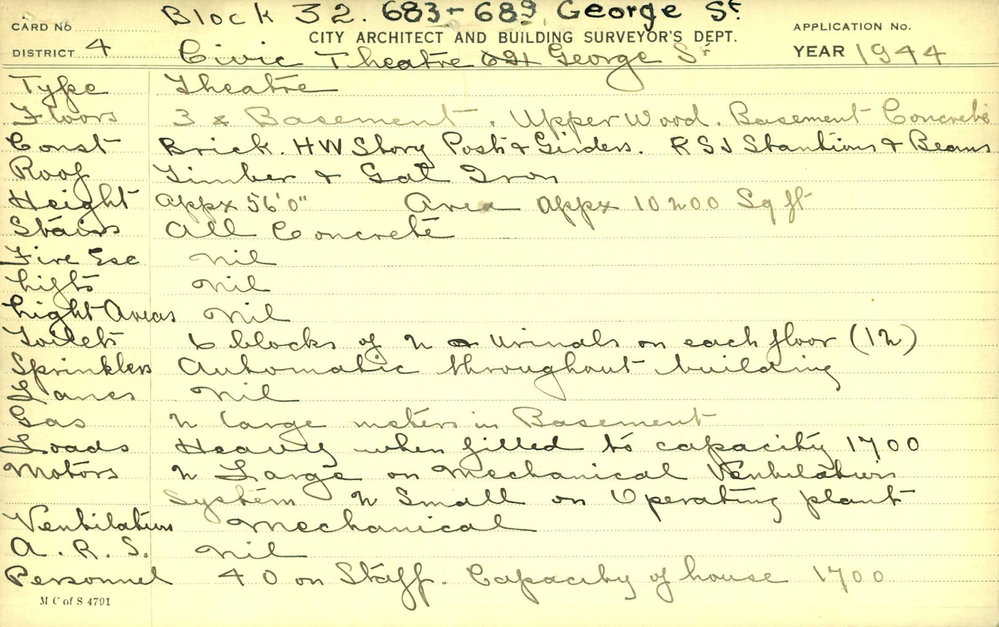 Block 32. 683-689 George St
CARD No
CITY ARCHITECT AND BUILDING SURVEYOR'S DEPT.
APPLICATION No.
DISTRICT 4
Civic Theatre George St
YEAR 1944
Type Theatre
Floors 3 & Basement. Upper Wood. Basement Concrete
Const Brick. HW Story Posts & Girders. RSJ Stantions & Beams
Roof Timber & Gal Iron
Height appx 56'0" Area appx 10200 Sq ft
Stairs All Concrete
Fire Esc Nil
Lifts Nil
Light Areas Nil
Toilets 6 blocks of 2 urinals on each floor (12)
Sprinklers Automatic throughout building
Lanes Nil
Gas 2 large meters in Basement
Loads Heavy when filled to capacity 1700
Motors 2 Large on Mechanical Ventilation
System 2 Small on Operating plant
Ventilation Mechanical
A.R.S. Nil
Personnel 40 on Staff. Capacity of house 1700
M C of S 4791